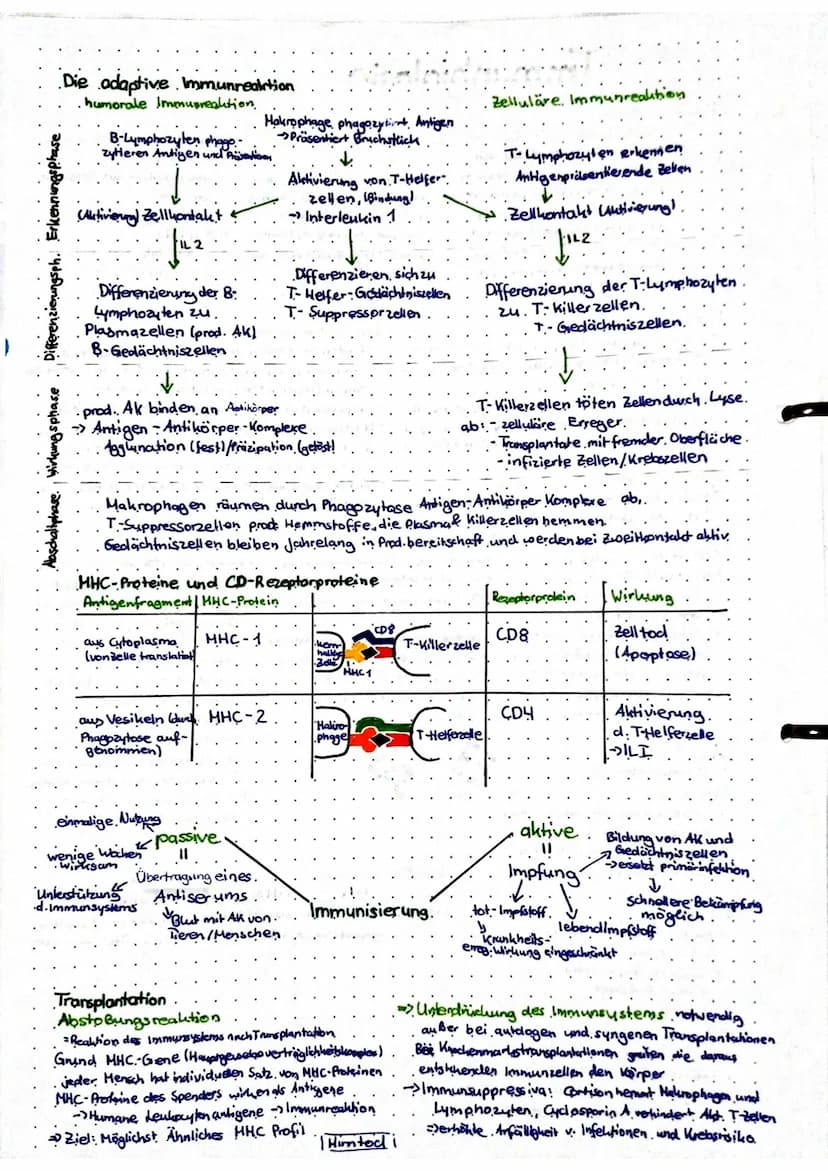 Die adaptive Immunreaktion
humorale Immunreaktion
Zelluläre Immunreaktion
Erkennungsphase
B-Lymphozyten phago-
zytieren Antigen und
Makrophage phagozytiert Antigen
→ Präsentiert Bruchstück
T-Lymphozyten erkennen
Antigenpräsentierende Zellen
Aktivierung von T-Helfer-
zellen (Bindung)
→ Interleukin 1
(Aktivierung) Zellkontakt
Zellkontakt (Aktivierung)
IL2
IL2
Differenzierungsph.
Differenzierung der B-
Lymphozyten zu
Plasmazellen (prod. AK)
B-Gedächtniszellen
Differenzieren sich zu
T-Helfer-Gedächtniszellen
T-Suppressorzellen
Differenzierung der T-Lymphozyten
zu T-Killerzellen
T-Gedächtniszellen
Wirkungsphase
prod. AK binden an Antikörper
→ Antigen-Antikörper-Komplexe
Agglunation (fest)/Präzipation (gelöst)
T-Killerzellen töten Zellen durch Lyse
ab: - zelluläre Erreger
- Transplantate mit fremder Oberfläche
- infizierte Zellen/Krebszellen
Abschaltphase
Makrophagen räumen durch Phagozytase Antigen-Antikörper Komplexe ab,
T-Suppressorzellen prod. Hemmstoffe, die Plasma & Killerzellen hemmen
Gedächtniszellen bleiben Jahrelang in Prod.bereitschaft und werden bei Zweitkontakt aktiv
MHC-Proteine und CD-Rezeptorproteine
Antigenfragment MHC-Protein Rezeptorprotein Wirkung
aus Cytoplasma
(von Zelle translatiert)
MHC-1
Kern
haltige
Zelle
CD8
MHC1
T-Killerzelle
CD8
Zelltod
(Apoptose)
aus Vesikeln (durch
Phagozytose auf-
genommen)
MHC-2
Makro
phage
T-Helferzelle
CD4
Aktivierung
d. T-Helferzelle
→ IL1
einmalige Nutzung
passive
wenige Wochen
wirksam
Übertragung eines
Antiserums
Unterstützung
d. Immunsystems
Blut mit AK von
Tieren/Menschen
Immunisierung
aktive
Impfung
Bildung von AK und
Gedächtniszellen
→ ersetzt primärinfektion
schnellere Bekämpfung
möglich
tot-Impfstoff
lebendImpfstoff
Krankheits-
erreg. Wirkung eingeschränkt
Transplantation
Abstoßungsreaktion
= Reaktion des Immunsystems nach Transplantation
Grund MHC-Gene (Hauptgewebeverträglichkeitskomplex)
jeder Mensch hat individuellen Satz von MHC-Proteinen
MHC-Proteine des Spenders wirken als Antigene
→ Humane Leukozytenantigene → Immunreaktion
⇒ Ziel: Möglichst Ähnliches MHC Profil
Hirntod
⇒ Unterdrückung des Immunsystems notwendig
außer bei autologen und syngenen Transplantationen
Bei Knochenmarkstransplantationen greifen die daraus
entstehenden Immunzellen den Körper
→ Immunsuppressiva: Cortison hemmt Makrophagen und
Lymphozyten, Cyclosporin A verhindert Akt. T-Zellen
⇒ erhöhte Anfälligkeit v. Infektionen und Krebsrisiko